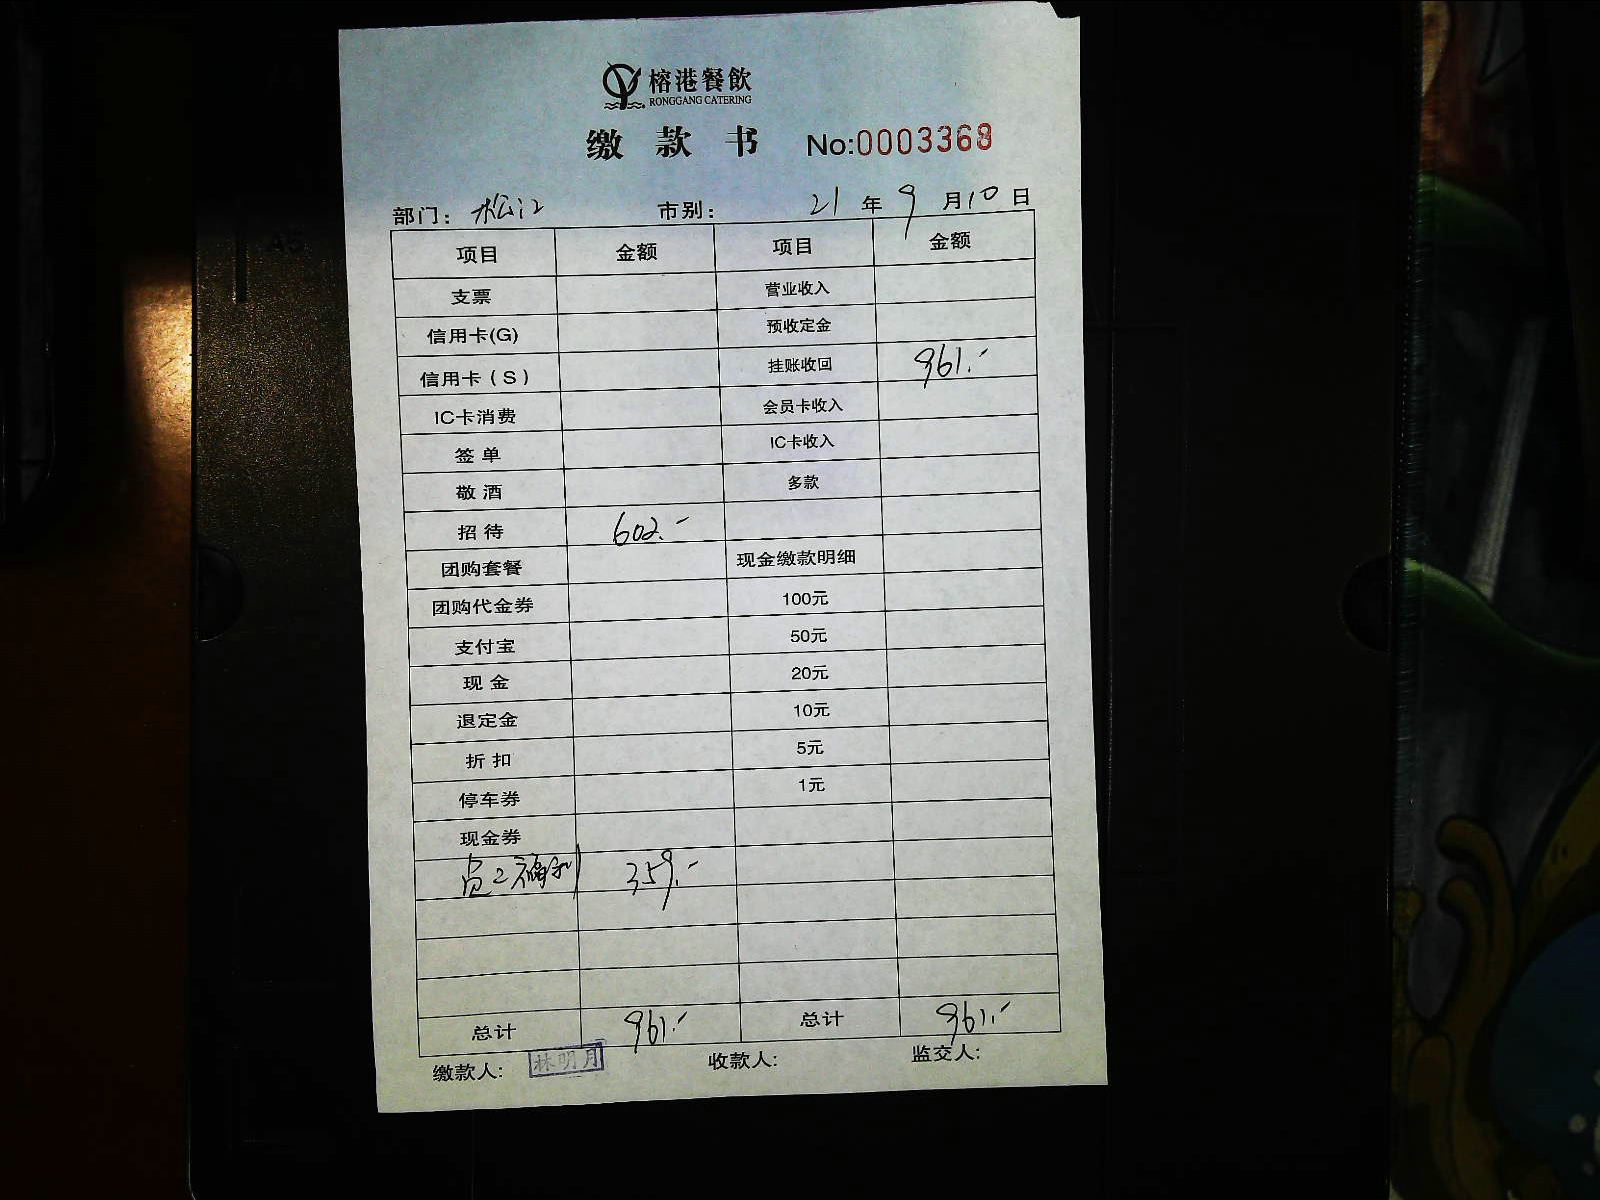 榕港餐飲
RONGGANG CATERING
缴 款 书 No:0003368
部门: 松江 市别: 21 年 9 月 10 日
项目 金额 项目 金额
支票 营业收入
信用卡(G) 预收定金
信用卡(S) 挂账收回 961.-
IC卡消费 会员卡收入
签单 IC卡收入
敬酒 多款
招待 602.-
团购套餐 现金缴款明细
团购代金券 100元
支付宝 50元
现金 20元
退定金 10元
折扣 5元
停车券 1元
现金券
员工福利 359.-
总计 961.- 总计 961.-
缴款人: 林明月 收款人: 监交人: